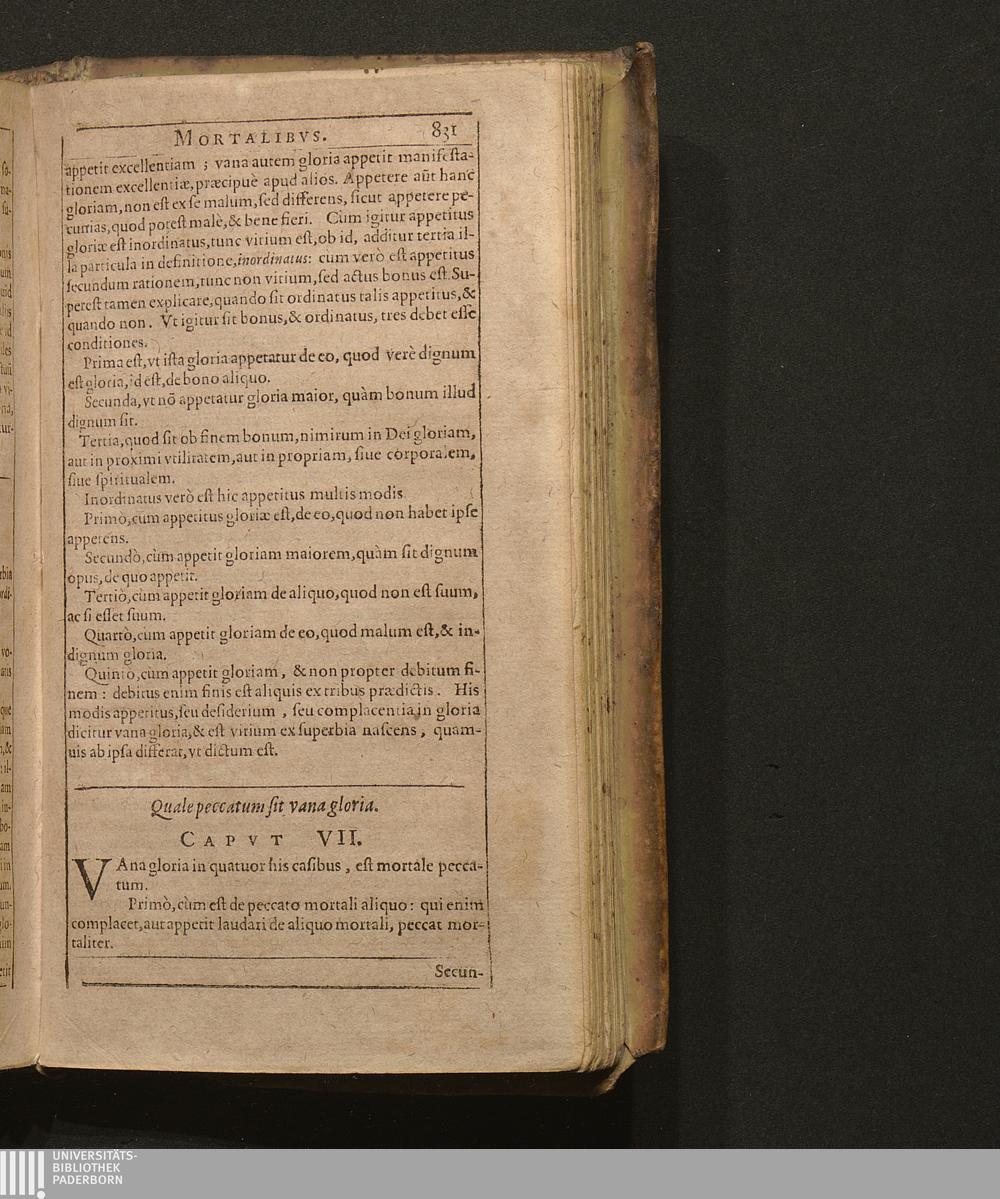 MORTALIBVS. 831
appetit excellentiam ; vana autem gloria appetit manifesta-
tionem excellentiæ, præcipuè apud alios. Appetere aūt hanc
gloriam, non est ex se malum, sed differens, sicut appetere pe-
cunias, quod potest malè, & bene fieri. Cùm igitur appetitus
gloriæ est inordinatus, tunc vitium est, ob id, additur tertia il-
la particula in definitione, inordinatus: cum verò est appetitus
secundum rationem, tunc non vitium, sed actus bonus est. Su-
perest tamen explicare, quando sit ordinatus talis appetitus, &
quando non. Vt igitur sit bonus, & ordinatus, tres debet esse
conditiones.
Prima est, vt ista gloria appetatur de eo, quod verè dignum
est gloria, id est, de bono aliquo.
Secunda, vt nō appetatur gloria maior, quàm bonum illud
dignum sit.
Tertia, quod sit ob finem bonum, nimirum in Dei gloriam,
aut in proximi vtilitatem, aut in propriam, siue corporalem,
siue spiritualem.
Inordinatus verò est hic appetitus multis modis.
Primò, cùm appetitus gloriæ est, de eo, quod non habet ipse
appetens.
Secundò, cùm appetit gloriam maiorem, quàm sit dignum
opus, de quo appetit.
Tertiò, cùm appetit gloriam de aliquo, quod non est suum,
ac si esset suum.
Quartò, cum appetit gloriam de eo, quod malum est, & in-
dignum gloria.
Quintò, cùm appetit gloriam, & non propter debitum fi-
nem : debitus enim finis est aliquis ex tribus prædictis. His
modis appetitus, seu desiderium , seu complacentia in gloria
dicitur vana gloria, & est vitium ex superbia nascens, quam-
uis ab ipsa differat, vt dictum est.
Quale peccatum sit vana gloria.
CAPVT VII.
VAna gloria in quatuor his casibus , est mortale pecca-
tum.
Primò, cùm est de peccato mortali aliquo: qui enim
complacet, aut appetit laudari de aliquo mortali, peccat mor-
taliter.
Secun-
UNIVERSITÄTS-
BIBLIOTHEK
PADERBORN